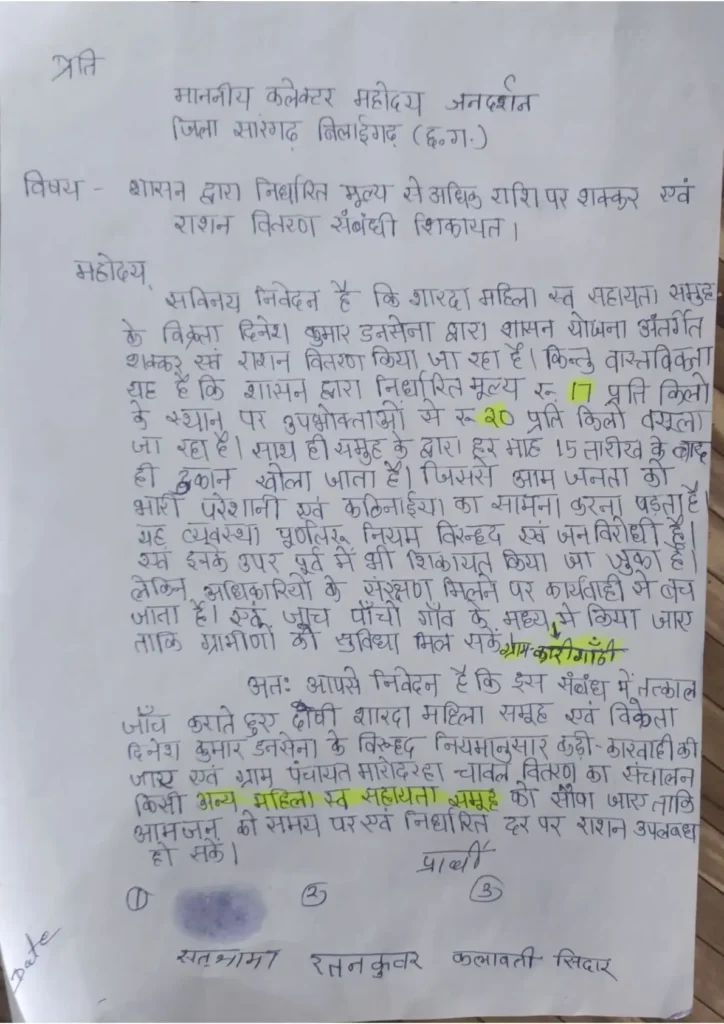 प्रति
माननीय कलेक्टर महोदय जनदर्शन
जिला सारंगढ़ बिलाईगढ़ (छ.ग.)
विषय - शासन द्वारा निर्धारित मूल्य से अधिक राशि पर शक्कर एवं
राशन वितरण संबंधी शिकायत।
महोदय,
सविनय निवेदन है कि शारदा महिला स्व सहायता समुह
के विक्रेता दिनेश कुमार डनसेना द्वारा शासन योजना अंतर्गत
शक्कर एवं राशन वितरण किया जा रहा है। किन्तु वास्तविकता
यह है कि शासन द्वारा निर्धारित मूल्य रू 17 प्रति किलो
के स्थान पर उपभोक्ताओं से रू 20 प्रति किलो वसूला
जा रहा है। साथ ही समुह के द्वारा हर माह 15 तारीख के बाद
ही दुकान खोला जाता है। जिससे आम जनता को
भारी परेशानी एवं कठिनाईया का सामना करना पड़ता है।
यह व्यवस्था पूर्णतः नियम विरूद्द एवं जन विरोधी है।
एवं इनके उपर पूर्व में भी शिकायत किया जा चुका है।
लेकिन अधिकारियों के संरक्षण मिलने पर कार्यवाही से बच
जाता है। एवं जाच पाँचो गाँव के मध्य में किया जाए
ताकि ग्रामीणों को सुविधा मिल सकें ग्राम-कारीगाँठी
अतः आपसे निवेदन है कि इस संबंध में तत्काल
जाँच कराते हुए दोषी शारदा महिला समूह एवं विक्रेता
दिनेश कुमार डनसेना के विरूद्द नियमानुसार कड़ी-कारवाही की
जाए एवं ग्राम पंचायत मारोदरहा चावल वितरण का संचालन
किसी अन्य महिला स्व सहायता समूह को सौपा जाए ताकि
आमजन को समय पर एवं निर्धारित दर पर राशन उपलबध
हो सकें।
प्रार्थी
① ② ③
सतभामा रतनकुवर कलावती सिदार
Date